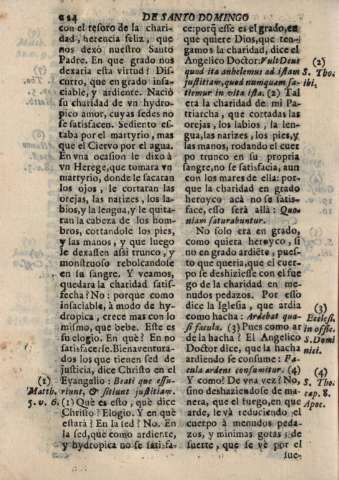 224 DE SANTO DOMINGO
con el tesoro de la charidad,
herencia feliz, que
nos dexò nuestro Santo
Padre. En que grado nos
dexaria esta virtud? Discurro,
que en grado insaciable,
y ardiente. Nació
su charidad de vn hydropico
amor, cuyas sedes no
se satisfacen. Sediento estaba
por el martyrio, mas
que el Ciervo por el agua.
En vna ocasion le dixo à
vn Herege, que tomara vn
martyrio, donde le sacatan
los ojos, le cortaran las
orejas, las narizes, los labios,
y la lengua, y le quitaran
la cabeza de los hombros,
cortandole los pies,
y las manos, y que luego
le dexassen assi trunco, y
monstruoso rebolcandose
en su sangre. Y veamos,
quedara la charidad satisfecha?
No: porque como
insaciable, à modo de hydropica,
crece mas con lo
mismo, que bebe. Este es
su elogio. En què? En no
satisfacerse. Bienaventurados
los que tienen sed de
justicia, dice Christo en el
(1) Evangelio: Beati que esu-
Matth. riunt, & sitiunt justitiam.
5. v. 6. (1) Què es esto, què dice
Christo? Elogio. Y en què
estarà? En la sed? No. En
la sed, que como ardiente,
y hydropica no se satisfa-
ce: porquè esse es el grado, en
que quiere Dios, que tengamos
la charidad, dice el
Angelico Doctor: Vult Deus
quod ita anhelemus ad istam
justitiam, quod nunquam satietemur
in vita ista. (2) Tal
(2)
S. Tho.
era la charidad de mi Patriarcha,
que cortadas las
orejas, los labios, la lengua,
las narizes, los pies, y
las manos, rodando el cuerpo
trunco en su propria
sangre, no se satisfacia, aun
con los mares de ella: porque
la charidad en grado
heroyco acà no se satisface,
esso serà allà: Quoniam
saturabuntur.
No solo era en grado,
como quiera heroyco, si
no en grado ardiente, puesto
que queria, que el cuerpo
se deshiziesse con el fuego
de la charidad en menudos
pedazos. Por esso
dice la Iglesia, que ardia
como hacha: Ardebat quasi
facula. (3) Pues como arde
la hacha? El Angelico
Doctor dice, que la hacha
ardiendo se consume: Facula
ardens consumitur. (4)
(3)
Eccles.
in offic.
S. Domi
nici.
(4)
S. Tho.
cap. 8.
Apoc.
Y como? De vna vez? No,
sino deshaziendose de manera,
que el fuego, en que
arde, le và reduciendo el
cuerpo à menudos pedazos,
y minimas gotas, de
suerte, que se vè por el
sue-